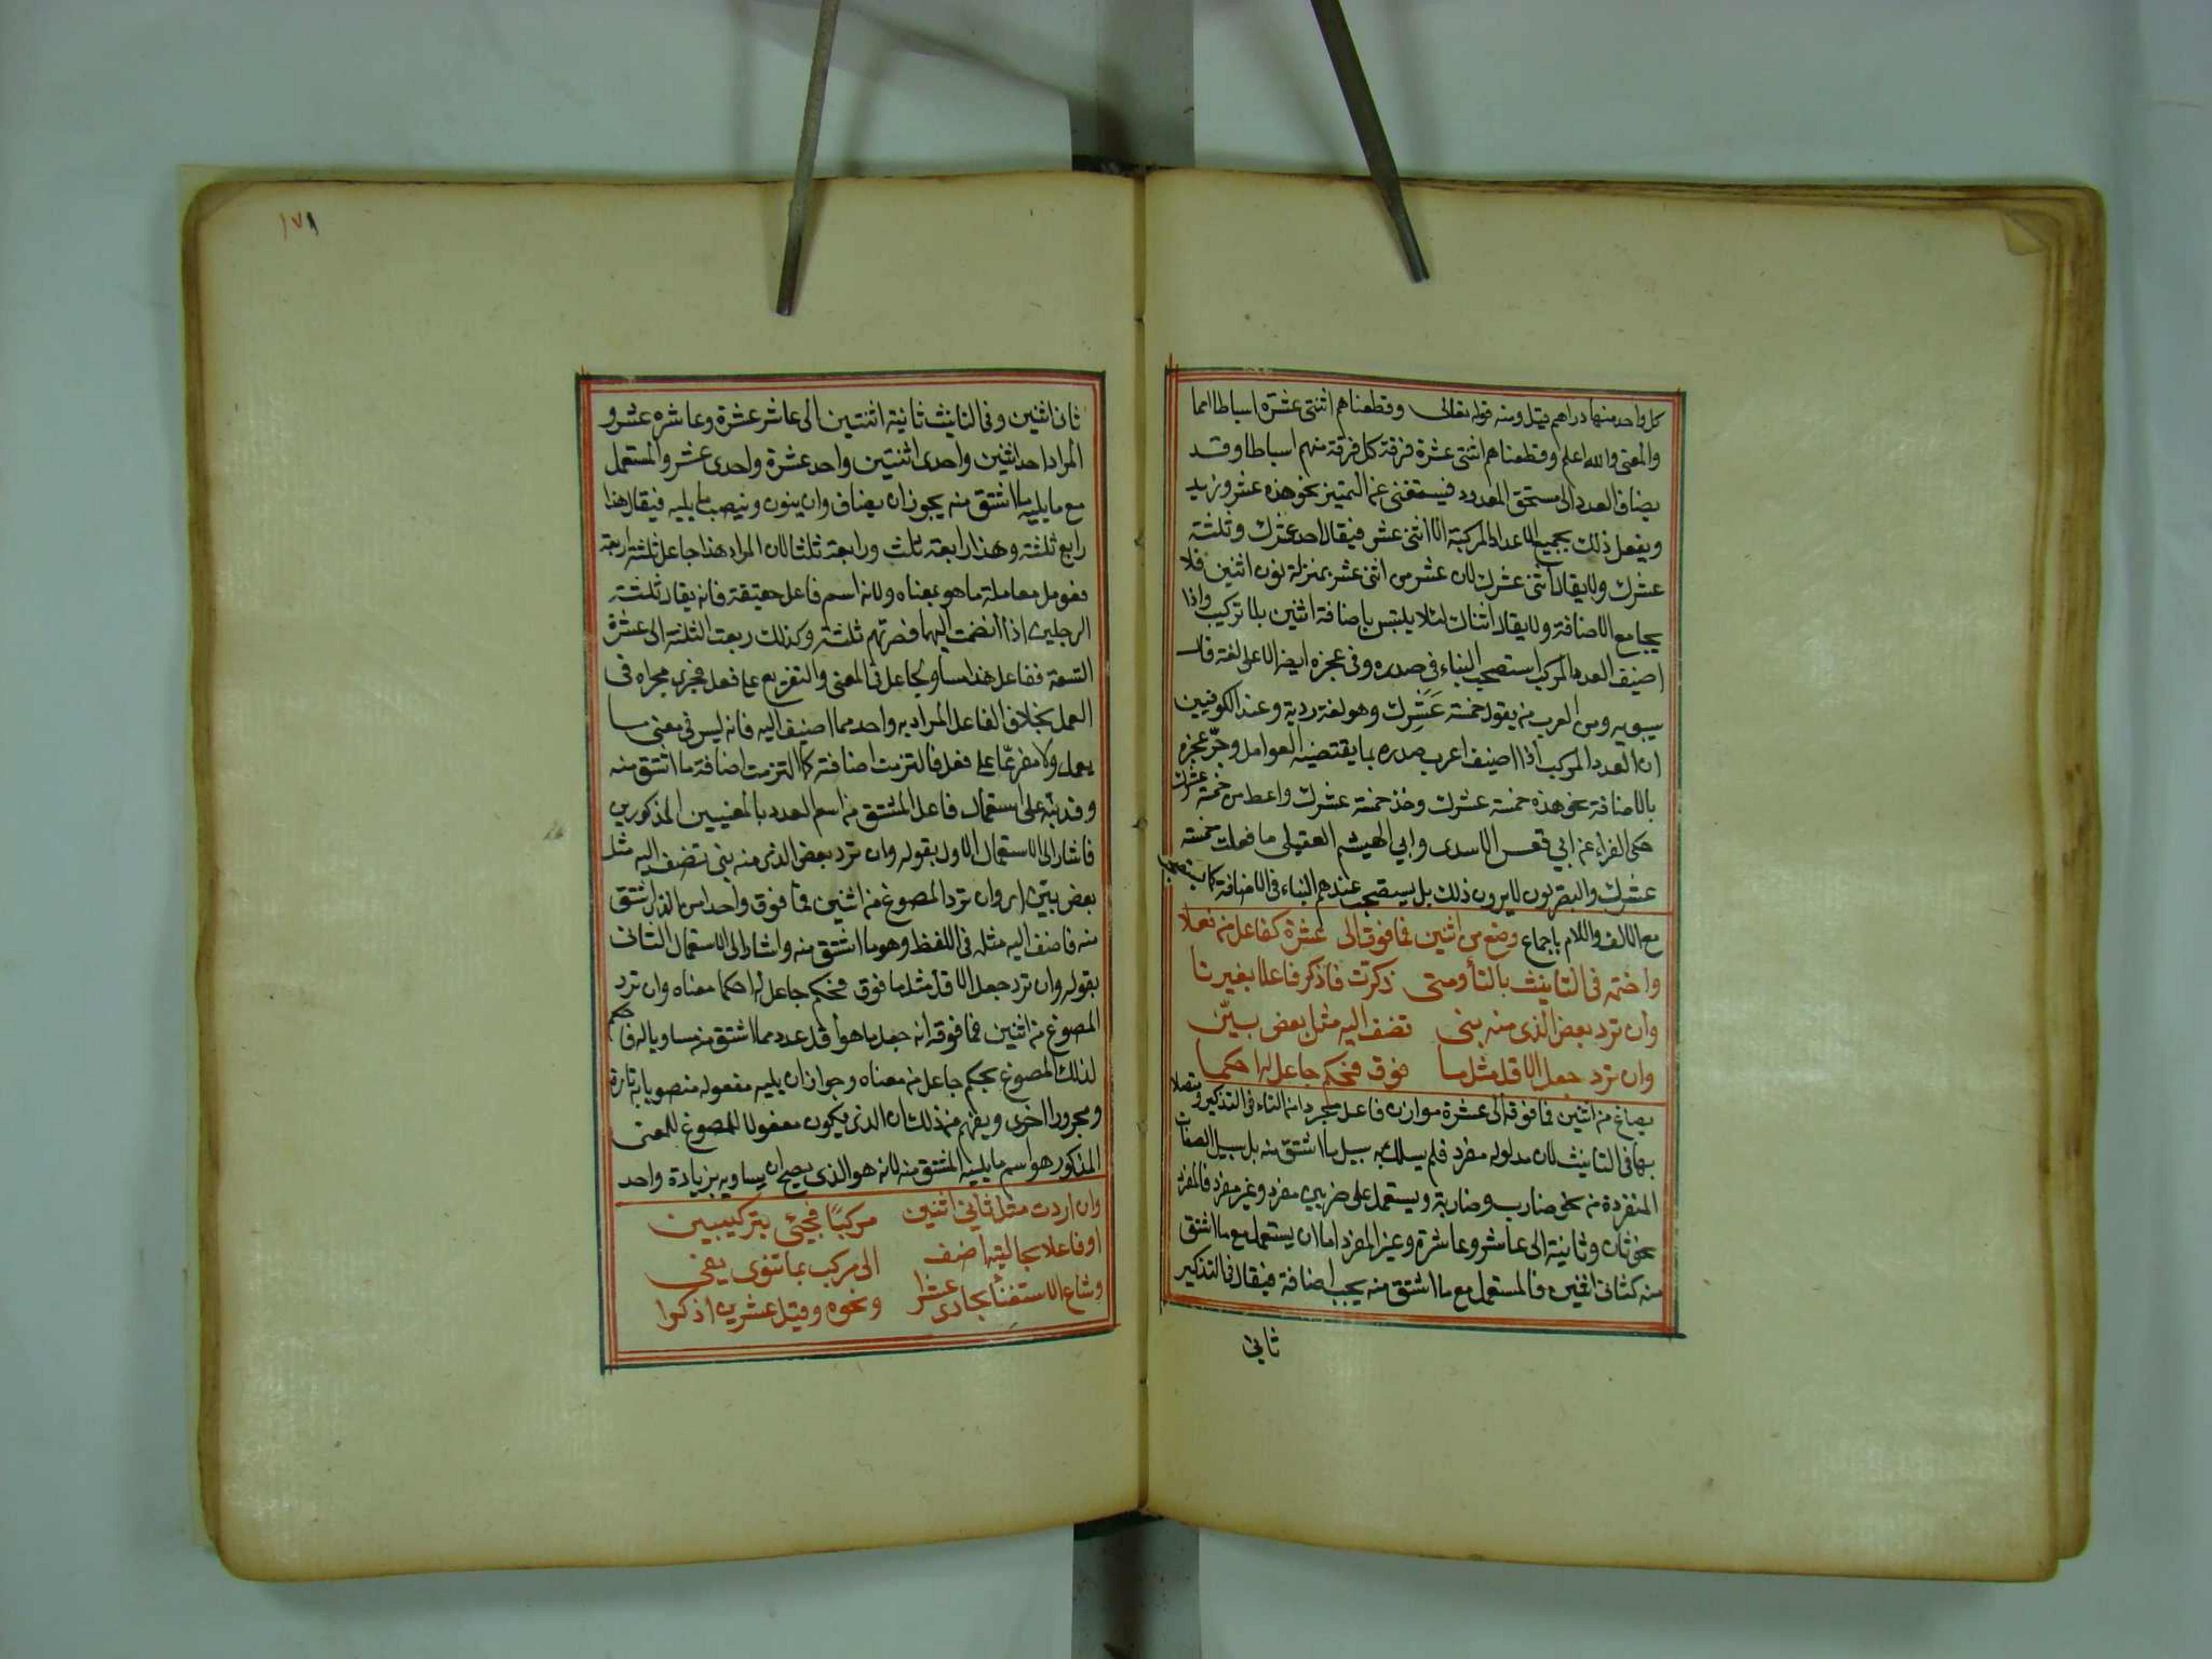 كل واحد منهما دراهم قيل ومنه قوله تعالى وقطعناهم اثنتى عشرة اسباطا امما
والمعنى والله اعلم وقطعناهم اثنتى عشرة فرقة كل فرقة منهم اسباطا وقد
يضاف العدد الى مستحق المعدود فيستغنى عن التمييز نحو هذه عشر وزيد
ويفعل ذلك بجميع الاعداد المركبة الا اثنى عشر فيقال احد عشرك وثلثة
عشرك ولا يقال اثنى عشرك لان عشر من اثنى عشر بمنزلة نون اثنين فلا
يجامع الاضافة ولا يقال اثناك لئلا يلتبس باضافة اثنين بلا تركيب واذا
اضيف العدد المركب استصحب البناء فى صدره وفى عجزه ايضا الا على لغة قال
سيبويه ومن العرب من يقول خمسة عَشَرِك وهو لغة ردية وعند الكوفيين
ان العدد المركب اذا اضيف اعرب صدره بما يقتضيه العوامل وجرّ عجزه
بالاضافة نحو هذه خمسة عشرك وخذ خمسة عشرك واعط من خمسة عشرك
حكى الفراء عن ابي فقعس الاسدى وابي الهيثم العقيلى ما فعلت خمسة
عشرك والبصريون لا يرون ذلك بل يستصحب عندهم البناء فى الاضافة كما يستصحب
مع الالف واللام باجماع وضع من اثنين فما فوق الى عشرة كفاعل من فعلا
واختمه فى التانيث بالتا ومتى ذكرت فاذكر فاعلا بغير تا
وان ترد بعض الذى منه بنى تضف اليه مثل بعض بيّن
وان ترد جعل الاقل مثل ما فوق فحكم جاعل له احكما
يصاغ من اثنين فما فوقه الى عشرة موازن فاعل مجردا من التاء فى التذكير ومتصلا
بها فى التانيث لان مدلوله مفرد فلم يسلك به سبيل ما اشتق منه بل سبيل الصفات
المنفردة من نحو ضارب وضاربة ويستعمل على ضربين مفرد وغير مفرد فالمفرد
نحو ثان وثانية الى عاشر وعاشرة وغير المفرد اما ان يستعمل مع ما اشتق
منه كثانى اثنين فالمستعمل مع ما اشتق منه يجب اضافة فيقال فى التذكير
ثانى
١٧١
ثان اثنين وفى التانيث ثانية اثنتين الى عاشر عشرة وعاشرة عشر و
المراد احد اثنين واحدى اثنتين واحد عشرة واحدى عشر والمستعمل
مع ما يليه ما اشتق منه يجوز ان يضاف وان ينون وينصب ما يليه فيقال هذا
رابع ثلثة وهذا رابعة ثلث ورابعة ثلثا لان المراد هذا جاعل ثلثة اربعة
فعومل معاملة ما هو بمعناه ولانه اسم فاعل حقيقة فانه يقال ثلثت
الرجلين اذا انضمت اليهما فصرتهم ثلثة وكذلك ربعت الثلثة الى عشرة
التسعة ففاعل هذا مساو لجاعل فى المعنى والتفريع على فعل فجرى مجراه فى
العمل بخلاف الفاعل المراد به واحد مما اضيف اليه فانه ليس فى معنى ما
يعمل ولا مفرعا على فعل فالتزمت اضافته كما التزمت اضافة ما اشتق منه
وقد نبّه على استعمال فاعل المشتق من اسم العدد بالمعنيين المذكورين
فاشار الى الاستعمال الاول بقوله وان ترد بعض الذى منه بنى تضف اليه مثل
بعض بيّن اى وان ترد المصوغ من اثنين فما فوق واحدا من الذى اشتق
منه فاضف اليه مثله فى اللفظ وهو ما اشتق منه واشار الى الاستعمال الثانى
بقوله وان ترد جعل الاقل مثل ما فوق فحكم جاعل له احكما معناه وان ترد
المصوغ من اثنين فما فوقه انه جعل ما هو اقل عدد مما اشتق منه مساويا له فاحكم
لذلك المصوغ بحكم جاعل من معناه وجواز ان يليه مفعوله منصوبا به تارة
ومجرورا اخرى ويفهم من ذلك ان الذى يكون مفعولا للمصوغ للمعنى
المذكور هو اسم ما يليه المشتق منه لانه هو الذى يصح ان يساويه بزيادة واحد
وان اردت مثل ثانى اثنين مركبًا فجئ بتركيبين
او فاعلا بحالتيه اضف الى مركب بما تنوى يفى
وشاع الاستغنا بحادى عشرا ونحوه وقبل عشرين اذكرا